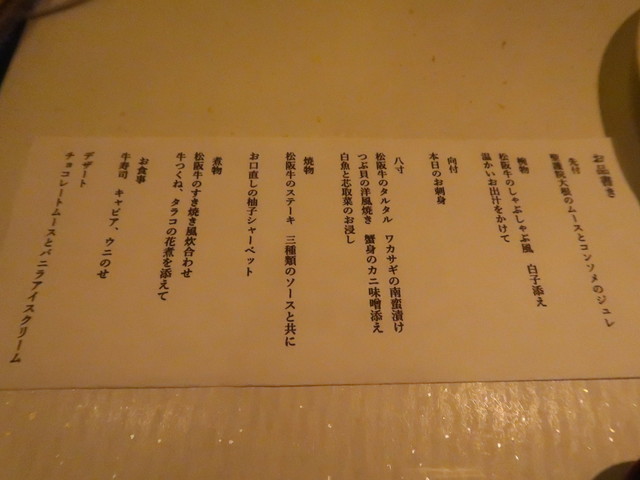 お品書き
先付
聖護院大根のムースとコンソメのジュレ
椀物
松阪牛のしゃぶしゃぶ風　白子添え
温かいお出汁をかけて
向付
本日のお刺身
八寸
松阪牛のタルタル　ワカサギの南蛮漬け
つぶ貝の洋風焼き　蟹身のカニ味噌添え
白魚と芯取菜のお浸し
焼物
松阪牛のステーキ　三種類のソースと共に
お口直しの柚子シャーベット
煮物
松阪牛のすき焼き風炊合わせ
牛つくね、タラコの花煮を添えて
お食事
牛寿司　キャビア、ウニのせ
デザート
チョコレートムースとバニラアイスクリーム